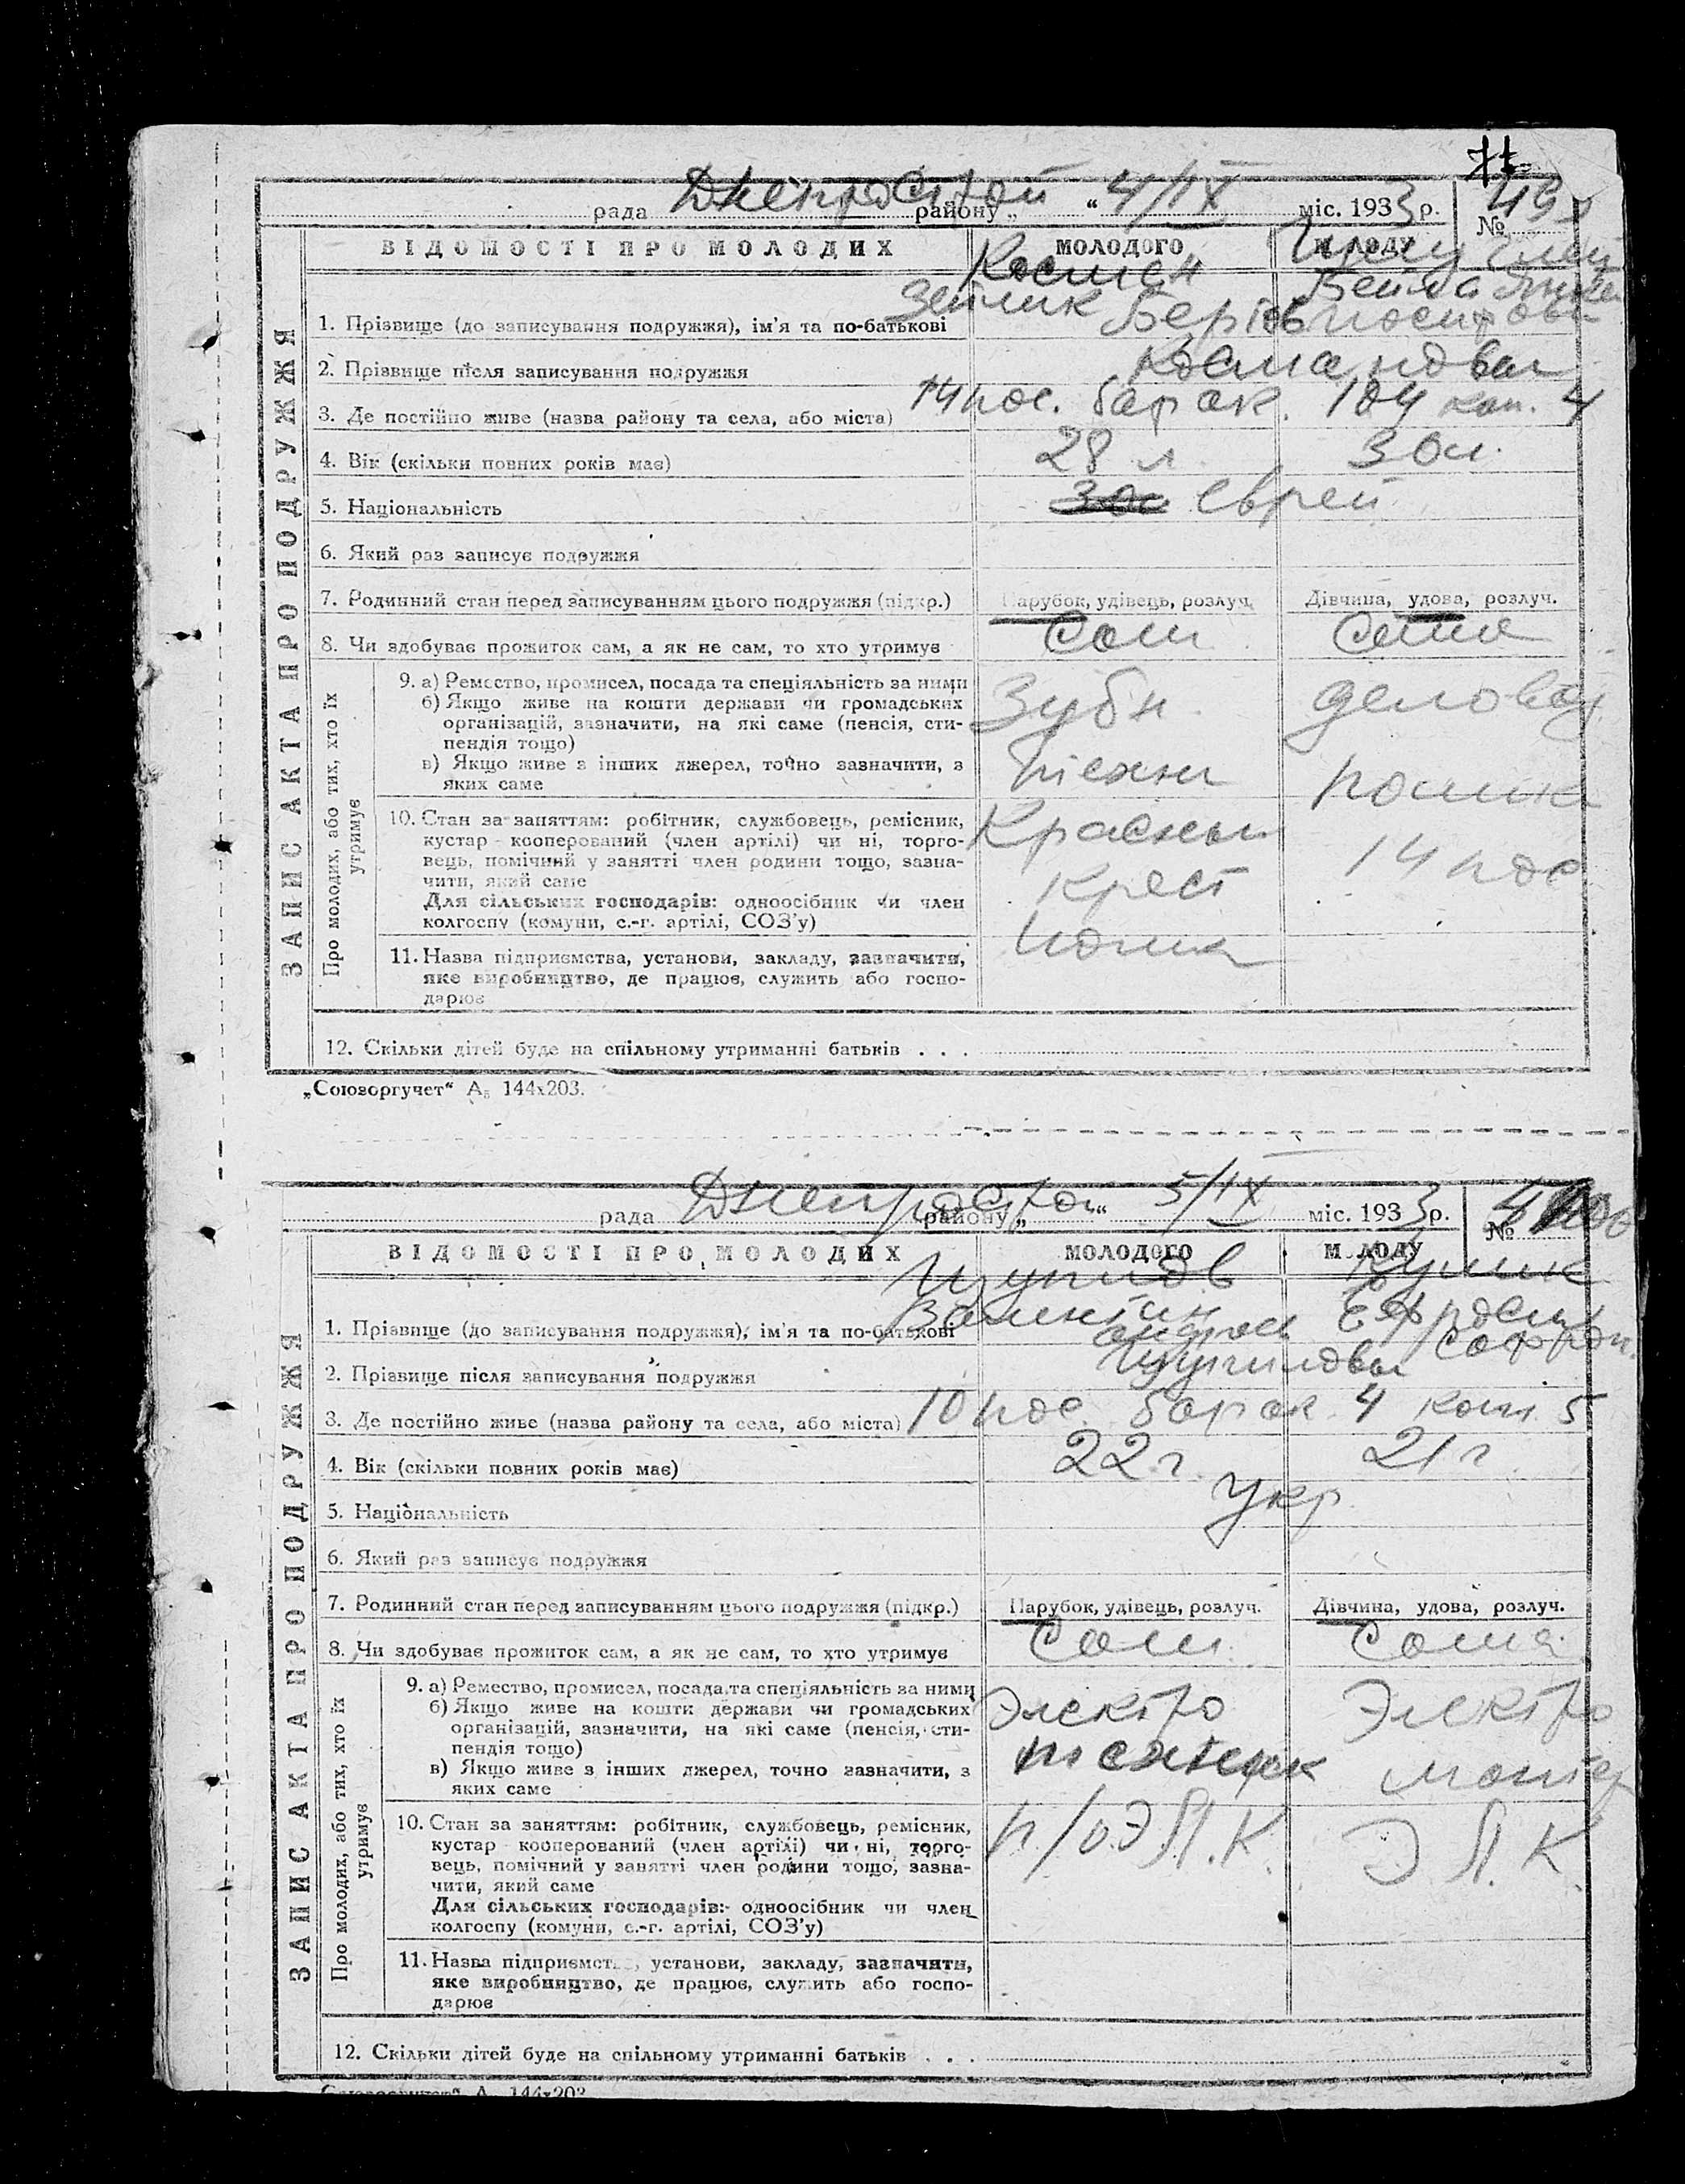 рада Днепрострой району „ “ 4/IX міс. 1933 р. №
ВІДОМОСТІ ПРО МОЛОДИХ МОЛОДОГО МОЛОДУ
Зейлик
1. Прізвище (до записування подружжя), ім'я та по-батькові
2. Прізвище після записування подружжя
3. Де постійно живе (назва району та села, або міста) 14 пос. барак. 104 ком. 4
4. Вік (скільки повних років має) 28 л. 30 л.
5. Національність Еврей
6. Який раз записує подружжя
7. Родинний стан перед записуванням цього подружжя (підкр.) Парубок, удівець, розлуч. Дівчина, удова, розлуч.
8. Чи здобуває прожиток сам, а як не сам, то хто утримує Сам Сама
ЗАПИС АКТА ПРО ПОДРУЖЖЯ
Про молодих, або тих, хто їх утримує
9. а) Ремество, промисел, посада та спеціяльність за ними Зубн.
б) Якщо живе на кошти держави чи громадських
організацій, зазначити, на які саме (пенсія, сти-
пендія тощо)
в) Якщо живе з інших джерел, точно зазначити, з техн
яких саме
10. Стан за заняттям: робітник, службовець, ремісник, Красный
кустар кооперований (член артілі) чи ні, торго-
вець, помічний у занятті член родини тощо, зазна- 14 пос.
чити, який саме Крест
Для сільських господарів: одноосібник чи член
колгоспу (комуни, с.-г. артілі, СОЗ'у)
11. Назва підприємства, установи, закладу, зазначити,
яке виробництво, де працює, служить або госпо-
дарює
12. Скільки дітей буде на спільному утриманні батьків . . .
„Союзоргучет“ А₅ 144х203.
рада Днепрострой району „ “ 5/IX міс. 1933 р. №
ВІДОМОСТІ ПРО МОЛОДИХ МОЛОДОГО МОЛОДУ
1. Прізвище (до записування подружжя), ім'я та по-батькові
2. Прізвище після записування подружжя
3. Де постійно живе (назва району та села, або міста) 10 пос. барак 4 ком. 5
4. Вік (скільки повних років має) 22 г. 21 г.
5. Національність Укр
6. Який раз записує подружжя
7. Родинний стан перед записуванням цього подружжя (підкр.) Парубок, удівець, розлуч. Дівчина, удова, розлуч.
8. Чи здобуває прожиток сам, а як не сам, то хто утримує Сам Сама
ЗАПИС АКТА ПРО ПОДРУЖЖЯ
Про молодих, або тих, хто їх утримує
9. а) Ремество, промисел, посада та спеціяльність за ними Электро Электро
б) Якщо живе на кошти держави чи громадських
організацій, зазначити, на які саме (пенсія, сти-
пендія тощо)
в) Якщо живе з інших джерел, точно зазначити, з монтер
яких саме
10. Стан за заняттям: робітник, службовець, ремісник,
кустар кооперований (член артілі) чи ні, торго-
вець, помічний у занятті член родини тощо, зазна-
чити, який саме
Для сільських господарів: одноосібник чи член
колгоспу (комуни, с.-г. артілі, СОЗ'у)
11. Назва підприємства, установи, закладу, зазначити,
яке виробництво, де працює, служить або госпо-
дарює
12. Скільки дітей буде на спільному утриманні батьків . . .